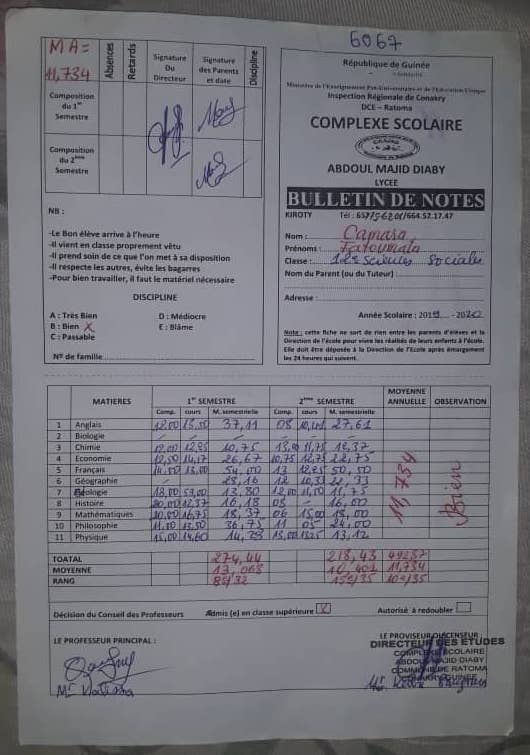 6067
MA=
11,734
Absences
Retards
Signature
Du
Directeur
Signature
des Parents
et date
Discipline
Composition
du 1er
Semestre
Composition
du 2ème
Semestre
NB :
-Le Bon élève arrive à l'heure
-Il vient en classe proprement vêtu
-Il prend soin de ce que l'on met à sa disposition
-Il respecte les autres, évite les bagarres
-Pour bien travailler, il faut le matériel nécessaire
DISCIPLINE
A : Très Bien D : Médiocre
B : Bien X E : Blâme
C : Passable
N° de famille
République de Guinée
Inspection Régionale de Conakry
DCE – Ratoma
COMPLEXE SCOLAIRE
ABDOUL MAJID DIABY
LYCEE
BULLETIN DE NOTES
KIROTY Tél : 657156201/664.52.17.47
Nom : Camara
Prénoms : Fatoumata
Classe : 12e sciences Sociales
Nom du Parent (ou du Tuteur)
Adresse :
Année Scolaire : 2019 - 2020
Note : cette fiche ne sort de rien entre les parents d'élèves et la
Direction de l'école pour vivre les réalisés de leurs enfants à l'école.
Elle doit être déposée à la Direction de l'Ecole après émargement
les 24 heures qui suivent.
MATIERES 1er SEMESTRE 2ème SEMESTRE MOYENNE ANNUELLE OBSERVATION
Comp. cours M. semestrielle Comp. cours M. semestrielle
1 Anglais 37,11 08 27,61
2 Biologie
3 Chimie 10,75 11,75 12,37
4 Economie 14,17 26,67 10,75 22,75
5 Français 14,50 13,00 54,00 13 50,50
6 Géographie 28,16 12 10,33
7 Géologie 18,00 13,80 12,00 11,50 11,75
8 Histoire 12,37 16,18 08 16,00
9 Mathématiques 16,75 18,37 06 15,00 18,00
10 Philosophie 11,00 13,50 36,75 11 05 24,00
11 Physique 15,00 14,60 13,00 13,25 13,12
11,734
Bien
TOATAL 274,44 218,43
MOYENNE 13,068 10,401 11,734
RANG 15e/35 10e/35
Décision du Conseil des Professeurs Admis (e) en classe supérieure X Autorisé à redoubler
LE PROFESSEUR PRINCIPAL :
LE PROVISEUR DU CENSEUR
DIRECTEUR DES ETUDES
COMPLEXE SCOLAIRE
ABDOUL MAJID DIABY
COMMUNE DE RATOMA
CONAKRY GUINEE